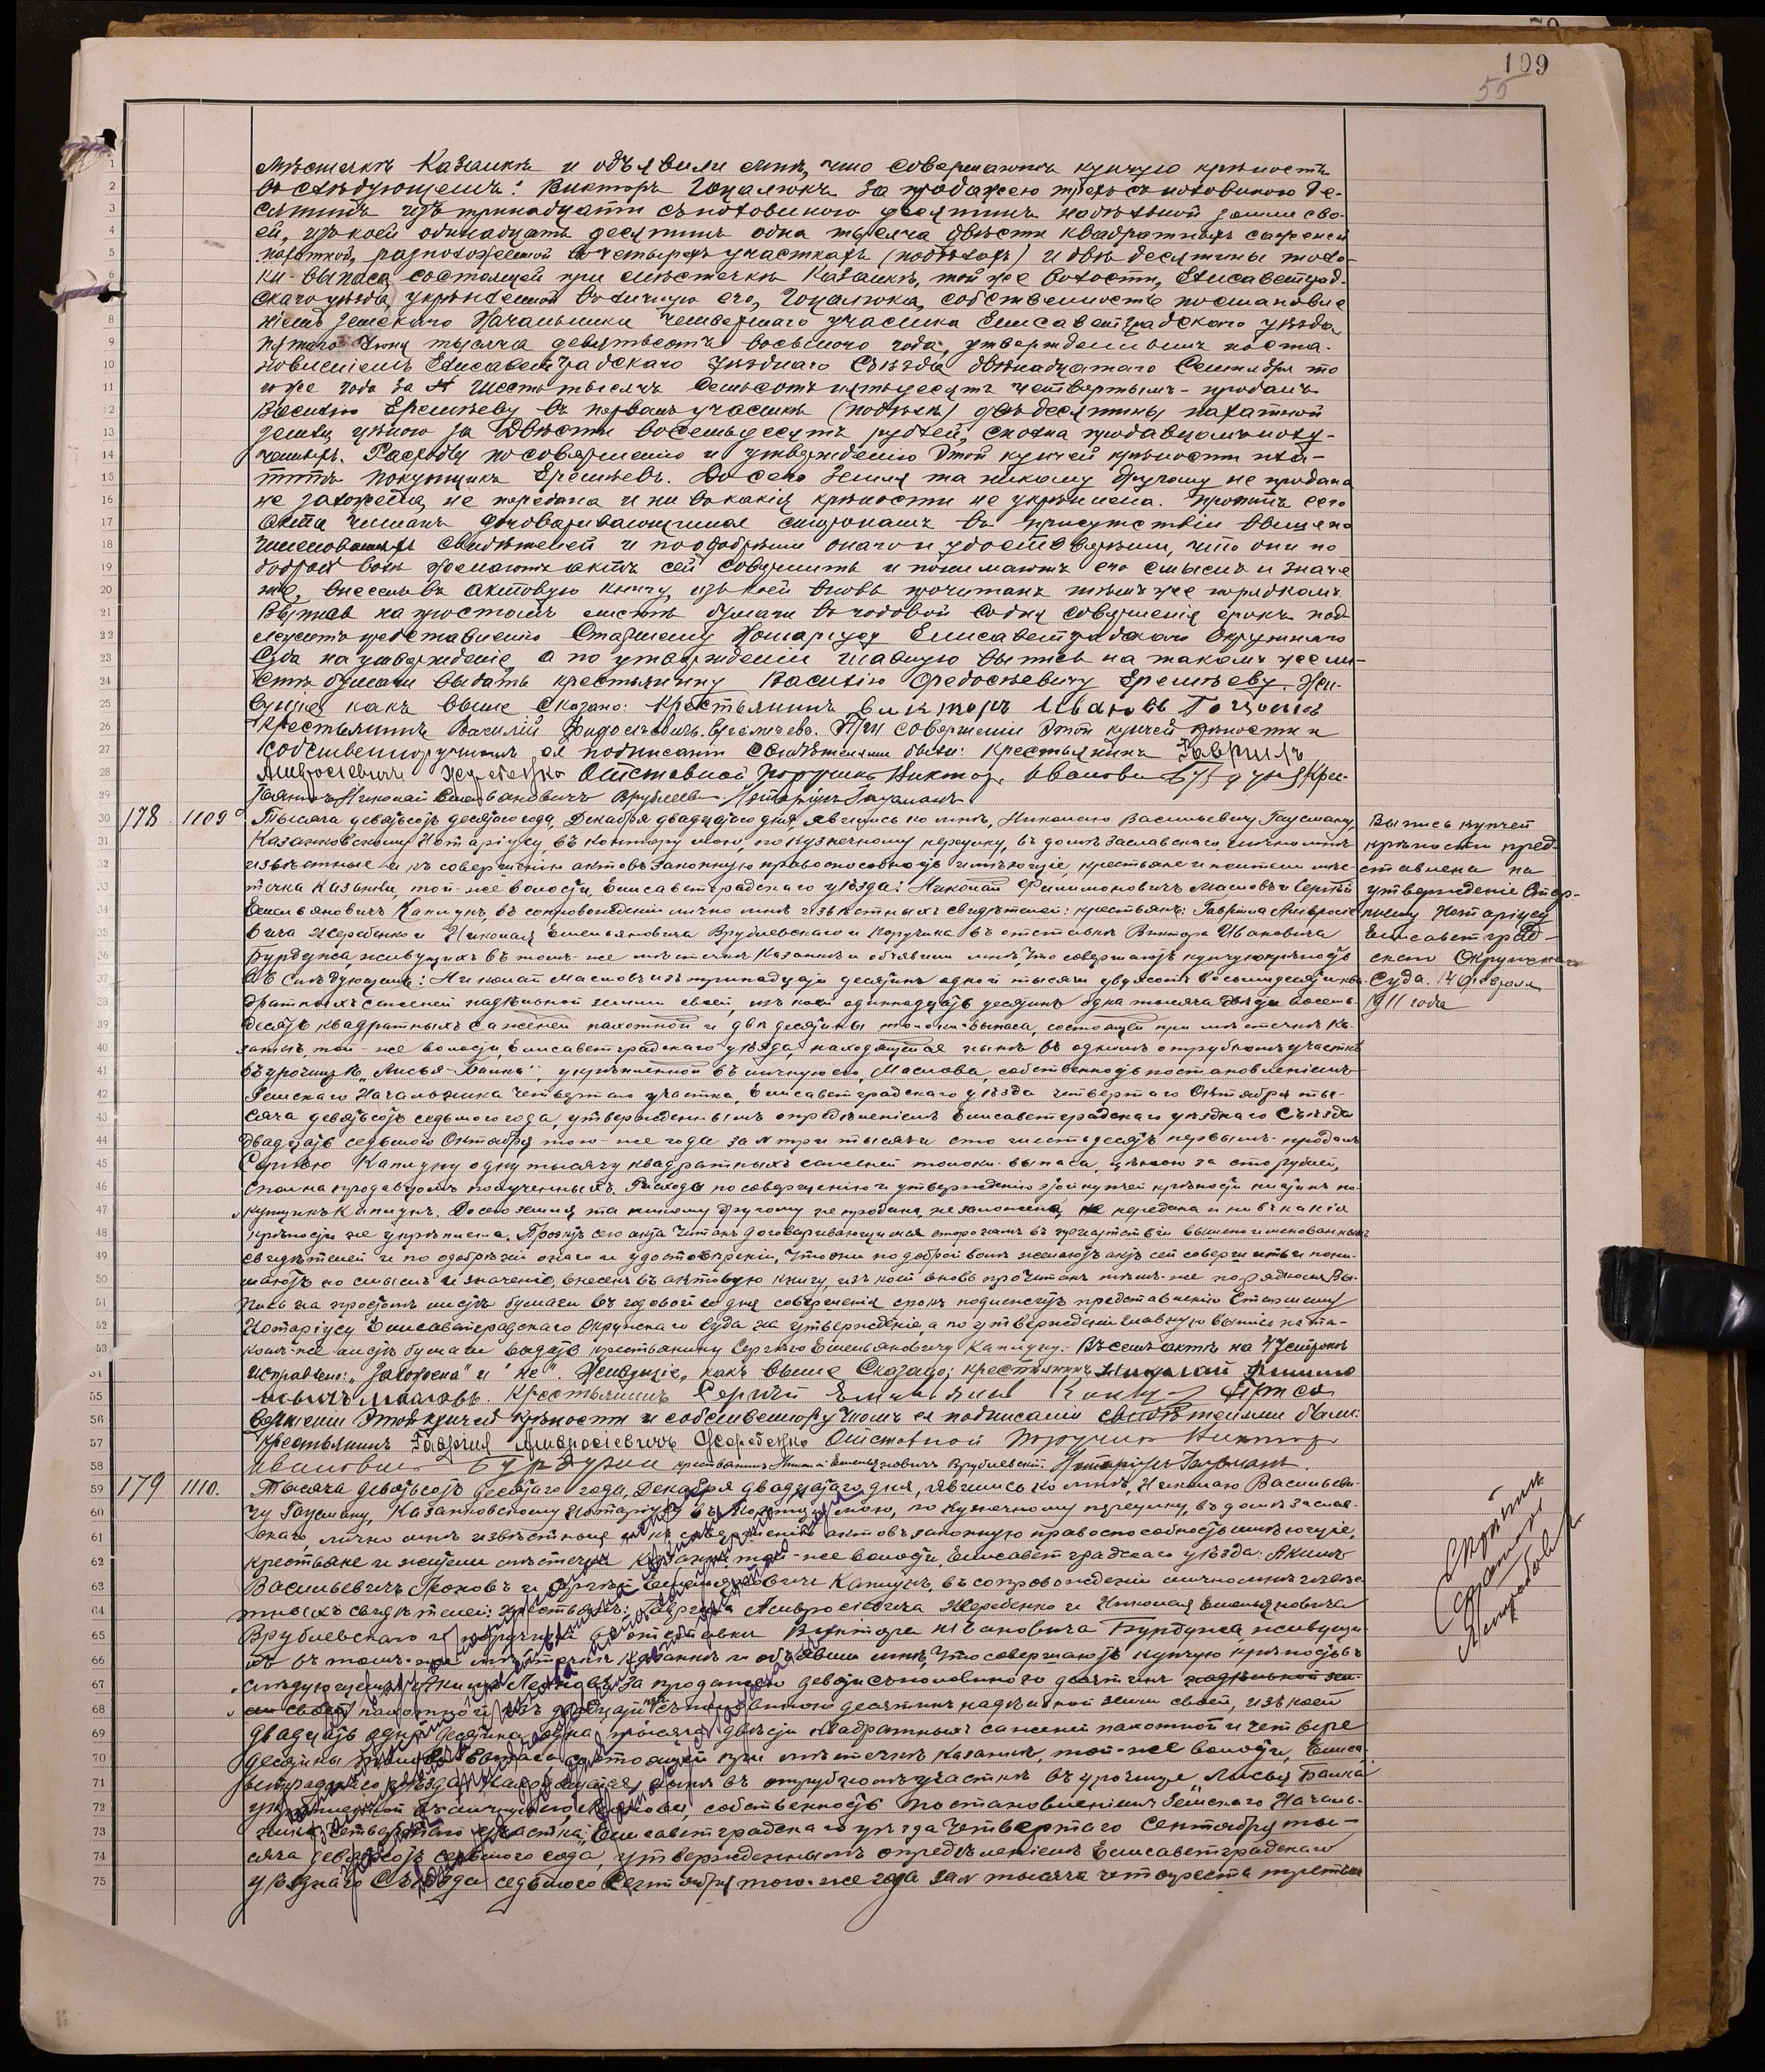 109
55
мѣстечкѣ Казанкѣ и объявили мнѣ, что совершаютъ купчую крѣпость
въ слѣдующемъ: Викторъ Гоцалюкъ за продажею трехъ съ половиною де-
сятинъ изъ тринадцати съ половиною десятинъ надѣльной земли сво-
ей, изъ коей одинадцать десятинъ одна тысяча двѣсти квадратныхъ саженей
пахатной, расположенной въ четырехъ участкахъ и двѣ десятины толо-
ки-выпаса, состоящей при мѣстечкѣ Казанкѣ, той же волости, Елисаветград-
скаго уѣзда, укрѣпленной въ личную его, Гоцалюка, собственность постановле
ніемъ Земскаго Начальника Четвертаго участка Елисаветградскаго уѣзда
пятаго Іюня тысяча девятьсотъ восьмого года, утвержденнымъ поста-
новленіемъ Елисаветградскаго Уѣзднаго Съѣзда двѣнадцатаго Сентября то
го же года за № шесть тысячъ семьсотъ пятьдесятъ четвертымъ - продалъ
Василію Еремѣеву въ первомъ участкѣ двѣ десятины пахатной
земли, цѣною за двѣсти восемьдесятъ рублей, сполна продавцомъ полу-
ченныхъ. Расходы по совершенію и утвержденію этой купчей крѣпости пла-
титъ покупщикъ Еремѣевъ. До сего земля та никому другому не продана
не заложена, не передана и ни въ какія крѣпости не укрѣплена. Проектъ сего
акта читанъ договаривающимся сторонамъ въ присутствіи вышепо
именованныхъ свидѣтелей и по одобреніи онаго и удостовѣреніи, что они по
доброй волѣ желаютъ актъ сей совершить и понимаютъ его смыслъ и значе
ніе, внесенъ въ актовую книгу, изъ коей вновь прочитанъ тѣмъ же порядкомъ.
Выпись на простомъ листѣ бумаги въ годовой со дня совершенія срокъ под
лежитъ представленію Старшему Нотаріусу Елисаветградскаго Окружнаго
Суда на утвержденіе, а по утвержденіи главную выпись на такомъ же ли-
стѣ бумаги выдать крестьянину Василію Федосѣевичу Еремѣеву. Жи-
вущіе, какъ выше сказано. Крестьянинъ Викторъ Ивановъ
Крестьянинъ Василій Еремѣевъ. При совершеніи этой купчей крѣпости и
собственноручномъ ея подписаніи свидѣтелями были: крестьянинъ Гаврилъ
Амвросіевичъ Жеребенко Отставной Поручикъ Викторъ Ивановичъ Бурдунъ Крес-
тьянинъ Николай Емельяновичъ Врублевскій Нотаріусъ Гаусманъ
178 1109 Тысяча девятьсотъ десятаго года, Декабря двадцатаго дня, явились ко мнѣ, Николаю Васильевичу Гаусману,
Казанковскому Нотаріусу, въ контору мою, по Кузнечному переулку, въ домѣ Заславскаго лично мнѣ
извѣстные и къ совершенію актовъ законную правоспособность имѣющіе, крестьяне и жители мѣс-
течка Казанки, той-же волости, Елисаветградскаго уѣзда: Николай Филимоновичъ Масловъ и Сергѣй
Емельяновичъ Капцунъ, въ сопровожденіи лично мнѣ извѣстныхъ свидѣтелей: крестьянъ: Гаврила Амвросіе
вича Жеребенко и Николая Емельяновича Врублевскаго и Поручика въ отставкѣ Виктора Ивановича
Бурдуна, живущихъ въ томъ-же мѣстечкѣ Казанкѣ и объявили мнѣ, что совершаютъ купчую крѣпость
въ слѣдующемъ: Николай Масловъ изъ тринадцати десятинъ одной тысячи двухсотъ восьмидесяти ква
дратныхъ саженей надѣльной земли своей, изъ коей одиннадцать десятинъ одна тысяча двѣсти восемь-
десятъ квадратныхъ саженей пахотной и двѣ десятины толоки-выпаса, состоящей при мѣстечкѣ Ка-
занкѣ, той-же волости, Елисаветградскаго уѣзда, находящейся нынѣ въ одномъ отрубномъ участкѣ
въ урочищѣ „Лисья-Балка", укрѣпленной въ личную его, Маслова, собственность постановленіемъ
Земскаго Начальника Четвертаго участка, Елисаветградскаго уѣзда четвертаго Октября ты-
сяча девятьсотъ седьмого года, утвержденнымъ опредѣленіемъ Елисаветградскаго уѣзднаго Съѣзда
двадцать седьмого Октября того-же года за № три тысячи сто шестьдесятъ первымъ - продалъ
Сергѣю Капцуну одну тысячу квадратныхъ саженей толоки-выпаса, цѣною за сто рублей,
сполна продавцомъ полученныхъ. Расходы по совершенію и утвержденію этой купчей крѣпости платитъ по-
купщикъ Капцунъ. До сего земля та никому другому не продана, не заложена, не передана и ни въ какія
крѣпости не укрѣплена. Проектъ сего акта читанъ договаривающимся сторонамъ въ присутствіи вышепоименованныхъ
свидѣтелей и по одобреніи онаго и удостовѣреніи, что они по доброй волѣ желаютъ актъ сей совершить и пони-
маютъ его смыслъ и значеніе, внесенъ въ актовую книгу, изъ коей вновь прочитанъ тѣмъ-же порядкомъ. Вы-
пись на простомъ листѣ бумаги въ годовой со дня совершенія срокъ подлежитъ представленію Старшему
Нотаріусу Елисаветградскаго Окружнаго Суда на утвержденіе, а по утвержденіи главную выпись на та-
комъ-же листѣ бумаги выдать крестьянину Сергѣю Емельяновичу Капцуну. Въ семъ актѣ на 47 строкѣ
исправлено: „заложена" и „не". Живущіе, какъ выше сказано: крестьянинъ Николай Филимо
новичъ Масловъ. Крестьянинъ Сергѣй При со
вершеніи этой купчей крѣпости и собственноручномъ ея подписаніи свидѣтелями были:
Крестьянинъ Гавріилъ Амвросіевичъ Жеребенко Отставной Поручикъ Викторъ
Ивановичъ Бурдунъ крестьянинъ Николай Емельяновичъ Врублевскій. Нотаріусъ Гаусманъ.
Выпись купчей
крѣпости пред-
ставлена на
утвержденіе Стар-
шему Нотаріусу
Елисаветград-
скаго Окружнаго
Суда. 14 Февраля
1911 года
179 1110. Тысяча девятьсотъ десятаго года, Декабря двадцатаго дня, явились ко мнѣ, Николаю Васильеви-
чу Гаусману, Казанковскому Нотаріусу въ контору мою, по Кузнечному переулку, въ домѣ Заслав-
скаго, лично мнѣ извѣстные и къ совершенію актовъ законную правоспособность имѣющіе,
крестьяне и жители мѣстечка Казанки, той-же волости, Елисаветградскаго уѣзда: Акимъ
Васильевичъ Леоновъ и Сергѣй Емельяновичъ Капцунъ, въ сопровожденіи лично мнѣ извѣс-
тныхъ свидѣтелей: крестьянъ: Гаврила Амвросіевича Жеребенко и Николая Емельяновича
Врублевскаго и поручика въ отставкѣ Виктора Ивановича Бурдуна, живущи
хъ въ томъ-же мѣстечкѣ Казанкѣ и объявили мнѣ, что совершаютъ купчую крѣпость въ
слѣдующемъ: Акимъ Леоновъ за продажею девяти съ половиною десятинъ надѣльной зем-
ли своей пахотной изъ съ половиною десятинъ надѣльной земли своей, изъ коей
двадцать одна десятина одна тысяча двѣсти квадратныхъ саженей пахотной и четыре
десятины толоки-выпаса, состоящей при мѣстечкѣ Казанкѣ, той-же волости, Елиса
ветградскаго уѣзда, находящейся нынѣ въ отрубномъ участкѣ въ урочищѣ „Лисья Балка"
укрѣпленной въ личную его, Леонова, собственность постановленіемъ Земскаго Началь-
ника Четвертаго участка, Елисаветградскаго уѣзда Четвертаго Сентября ты-
сяча девятьсотъ седьмого года, утвержденнымъ опредѣленіемъ Елисаветградскаго
уѣзднаго Съѣзда седьмого Сентября того-же года за № тысяча четыреста третьи